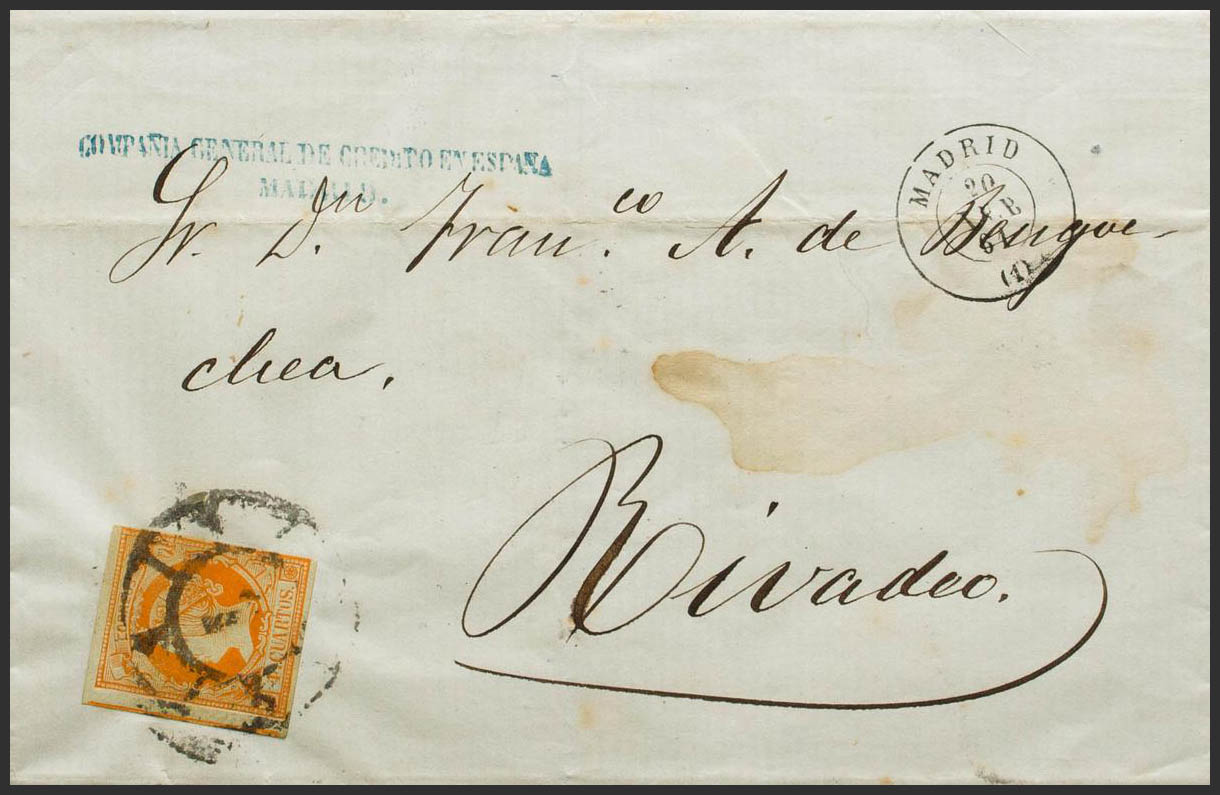 COMPAÑIA GENERAL DE CREDITO EN ESPAÑA
MADRID.
MADRID
20
FEB
61
(1)
Sr. Dn. Franco. A. de Bengoe-
chea.
Rivadeo.
CUARTOS.